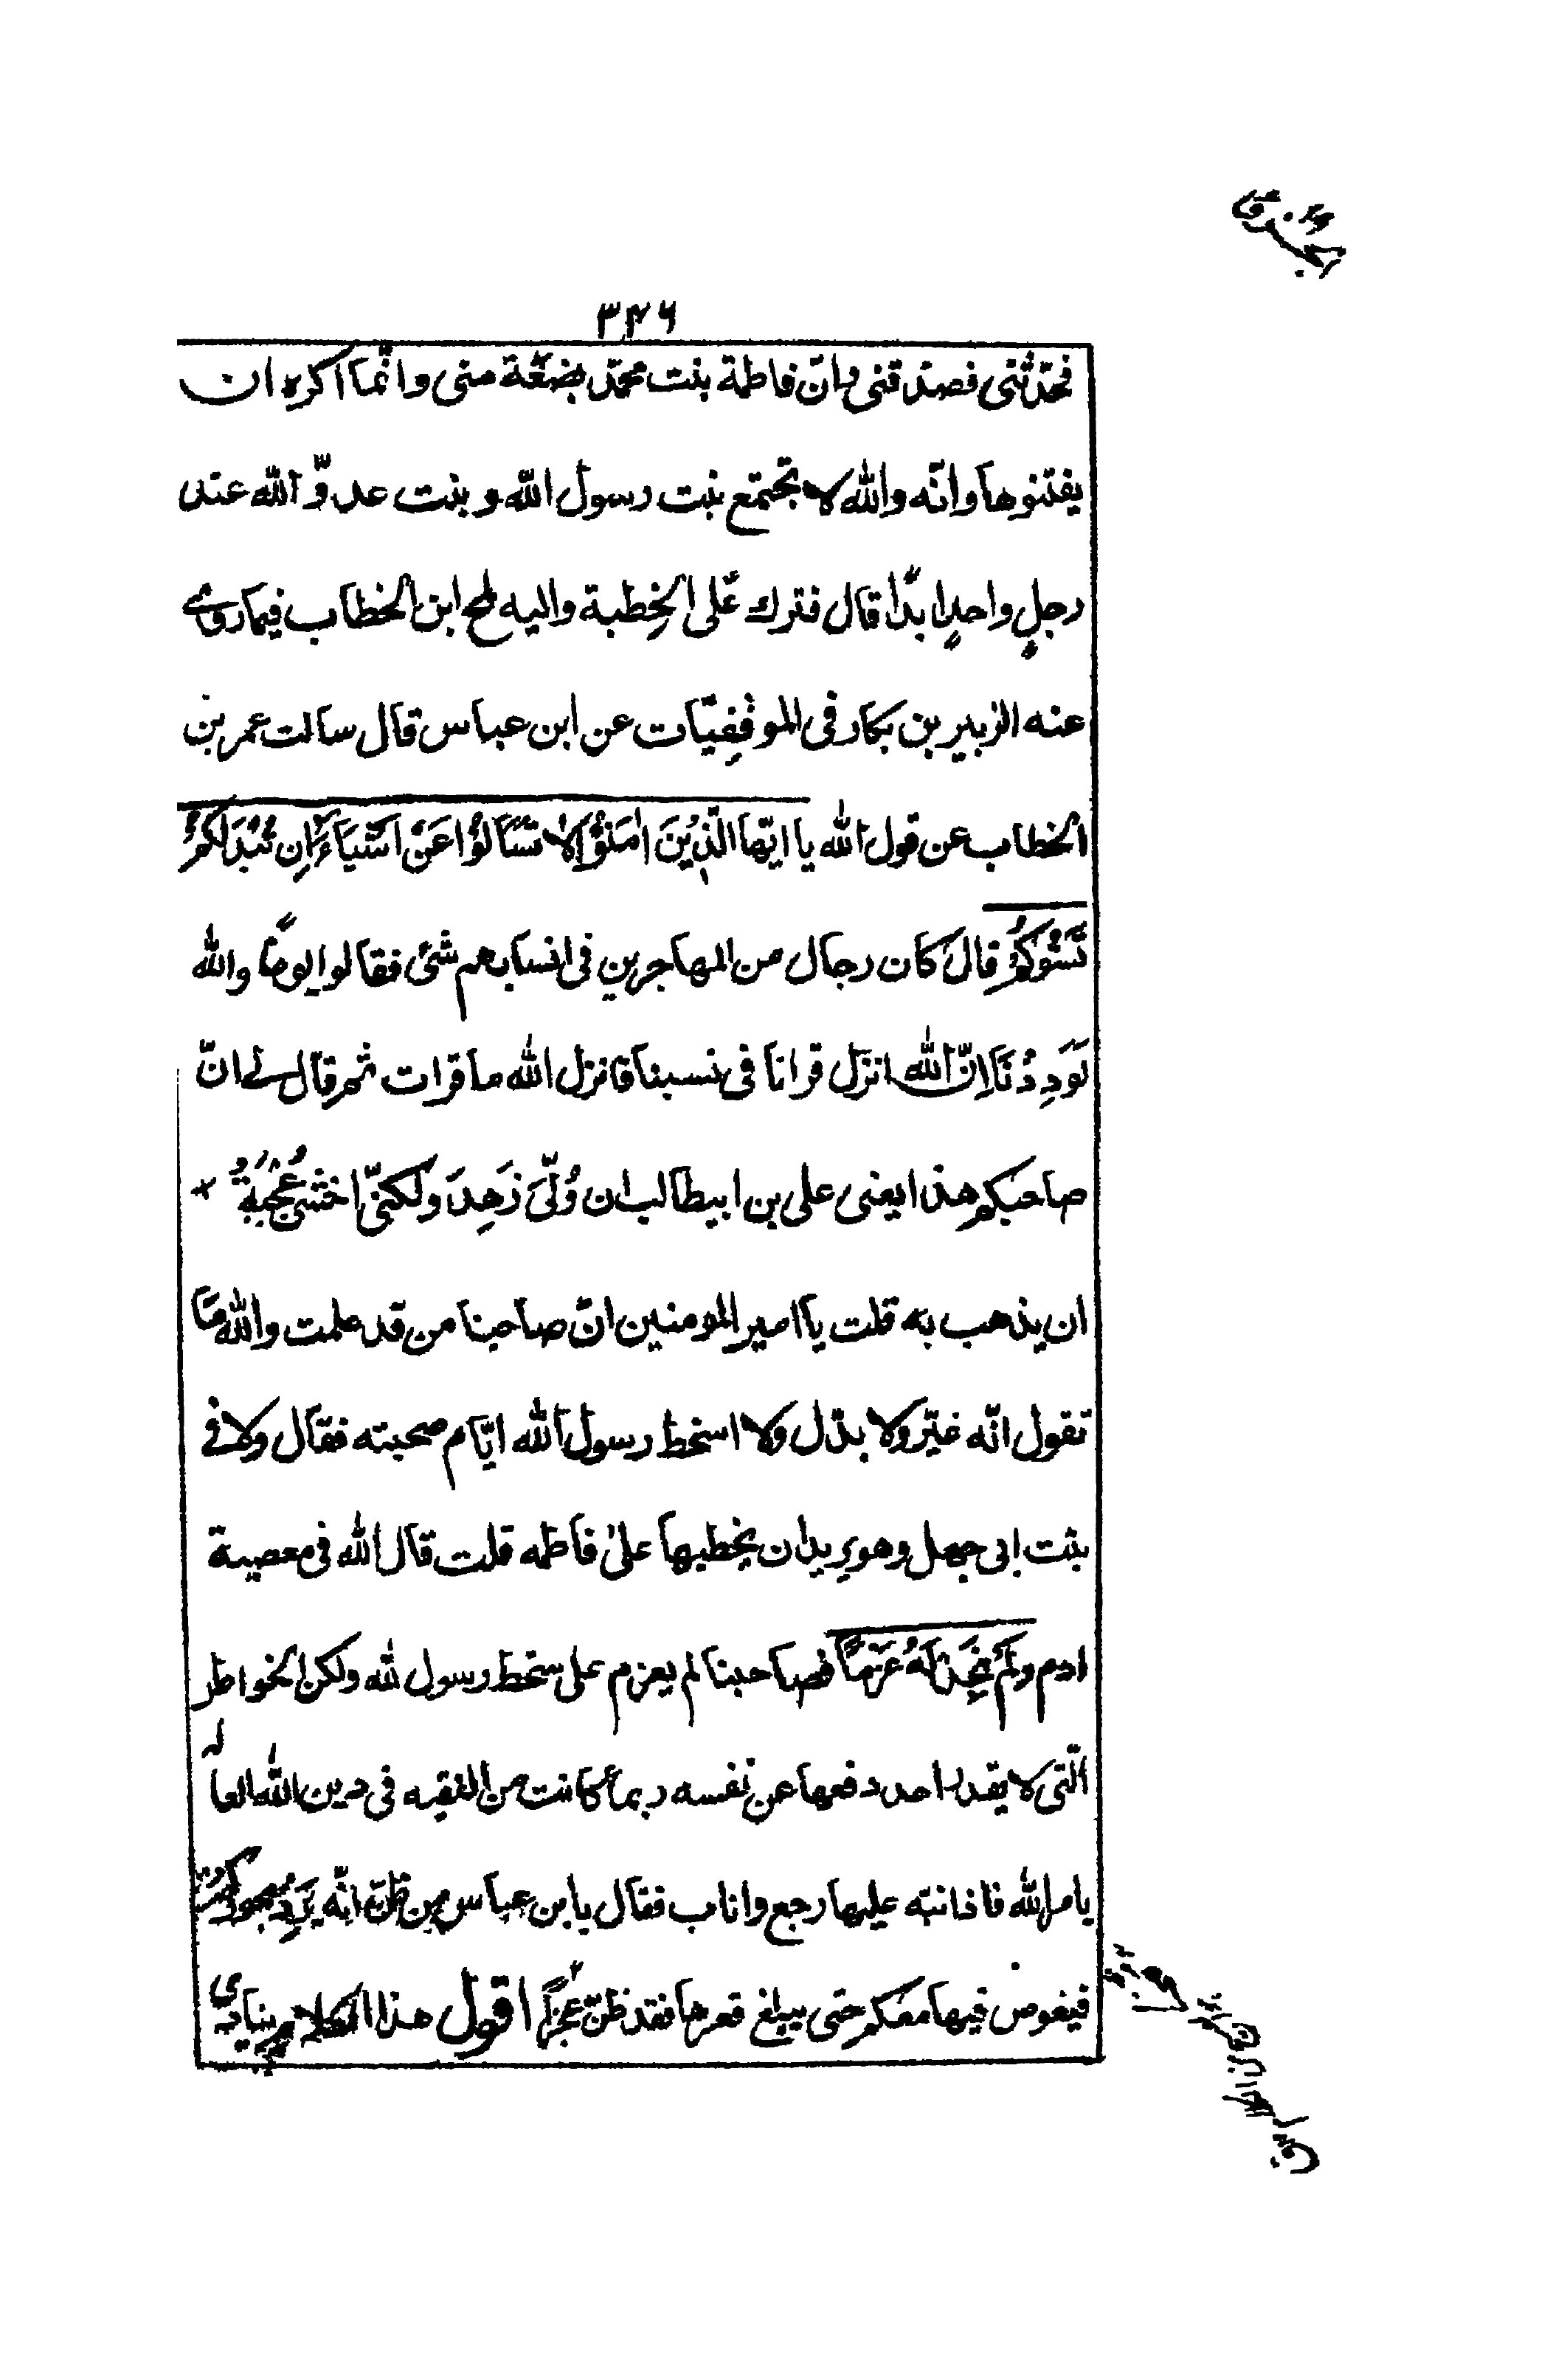 ٣٤٦
فحدّثنى فصدقنى وانّ فاطمة بنت محمّد بضعة منى وانّما اكره ان
يفتنوها وانّه والله لا تجتمع بنت رسول الله وبنت عدوّ الله عند
رجلٍ واحدٍ ابدًا قال فترك علىّ الخِطبة واليه لمح ابن الخطاب فيما روى
عنه الزبير بن بكار فى الموفقيّات عن ابن عباس قال سالت عمر بن
الخطاب عن قول الله يا ايّها الّذِيْنَ اٰمَنُوْا لاٰ تَسْاَلُوْا عَنْ اَشْيَاءَ اِن تُبْدَ لَكُمْ
تَسُؤْكُمْ قال كان رجال من المهاجرين فى انسابهم شئ فقالوا يومًا والله
لَوَدِدْنَا انّ الله انزل قرانا فى نسبنا فانزل الله ما قرات ثم قال لى انّ
صاحبكم هذا يعنى على بن ابيطالب ان وُلّىَ زَهِدَ ولكنّى اخشى عُجْبَهُ
ان يذهب به قلت يا امير المومنين انّ صاحبنا من قد علمت والله ما
تقول انّه غيّر ولا بدّل ولا اسخط رسول الله ايّام صحبته فقال ولا فى
بنت ابى جهل وهو يريد ان يخطبها على فاطمه قلت قال الله فى معصية
ادم وَلَمْ نَجِدْ لَهُ عَزْمًا فصاحبنا لم يعزم على سخط رسول لله ولكن الخواطر
الّتى لا يقدر احد دفعها عن نفسه ربما كانت من الفقيه فى دين الله العالم
بامر الله فاذا نبّه عليها رجع واناب فقال يا بن عباس من ظنّ انّه يَرِدُ بحوركم
فيغوص فيها معكم حتى يبلغ قعرها فقد ظنّ عجزًا اقول هذا الكلام ينادى